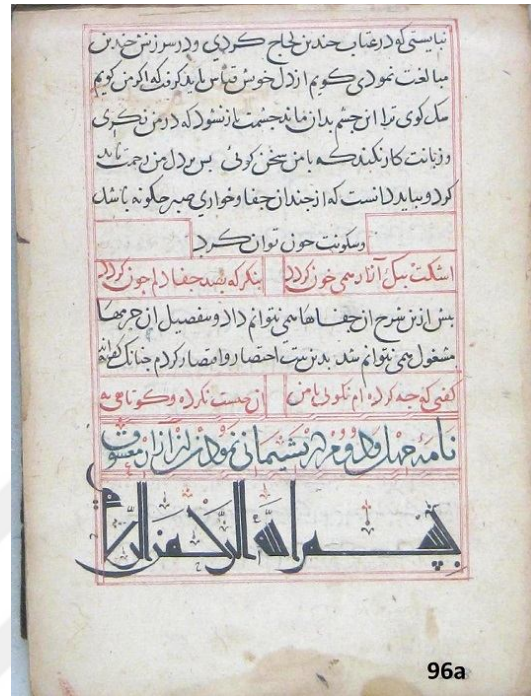 نبایستی که در عتاب چندین لجاج کردی و در سرزنش چندین
مبالغت نمودی کویم از دل خویش قیاس باید کرفت که اکر من کویم
مکوی ترا از خشم بدان ماند جشمت باز نشود که در من نکری
و زبانت کار نکند که با من سخن کوئی بس بر دل من رحمت باید
کرد و بباید دانست که از جندان جفا و خواری صبر جکونه باشد
و سکونت جون توان کرد
اشکت بیک آزار همی خون کردد بنکر که بصد جفا دلم جون کردد
بیش ازین شرح از جفاها همی نتوانم داد و بتفصیل از جرمها
مشغول همی نتوانم شد بدین بیت اختصار و اقتصار کردم جنانک کفته‌اند
کفتی که جه کرده‌ام نکوئی با من آن جیست نکرده و کو نامی به
نامه جهل و دوم در بشیمانی نمودن از آزار معشوق
بسم الله الرحمن الرحیم
96a